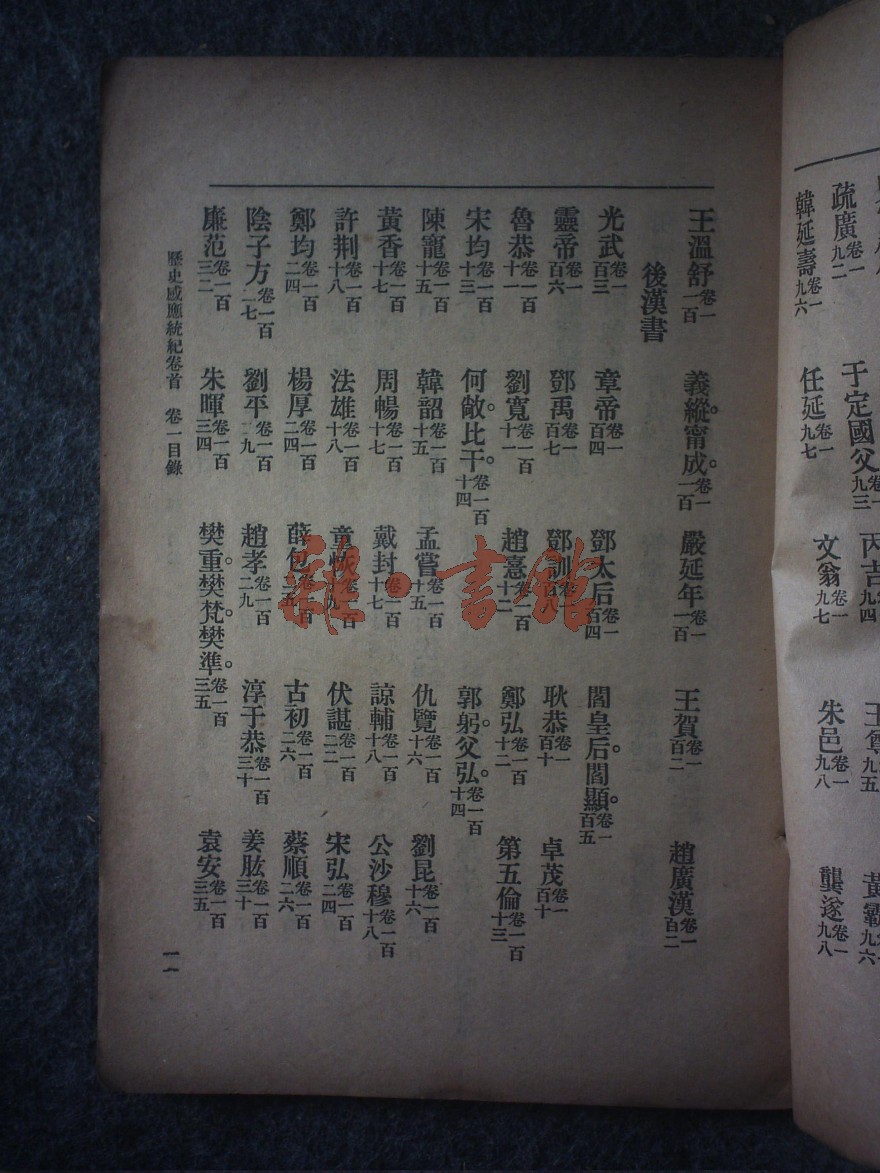 疏廣卷一九二 于定國父卷一九三 丙吉卷一九四 王尊卷一九五 黃霸卷一九六
韓延壽卷一九六 任延卷一九七 文翁卷一九七 朱邑卷一九八 龔遂卷一九八
王溫舒卷一一百 義縱。甯成。卷一一百 嚴延年卷一一百 王賀卷一百二 趙廣漢卷一百二
後漢書
光武卷一百三 章帝卷一百四 鄧太后卷一百四 閻皇后。閻顯。卷一百五
靈帝卷一百六 鄧禹卷一百七 鄧訓卷一百八 耿恭卷一百十 卓茂卷一百十
魯恭卷一百十一 劉寬卷一百十一 趙憙卷一百十二 鄭弘卷一百十二 第五倫卷一百十三
宋均卷一百十三 何敞。比干。卷一百十四 郭躬。父弘。卷一百十四
陳寵卷一百十五 韓韶卷一百十五 孟嘗卷一百十五 仇覽卷一百十六 劉昆卷一百十六
黃香卷一百十七 周暢卷一百十七 戴封卷一百十七 諒輔卷一百十八 公沙穆卷一百十八
許荆卷一百十八 法雄卷一百十八 童恢卷一百十九 伏諶卷一百二二 宋弘卷一百二四
鄭均卷一百二四 楊厚卷一百二四 薛包卷一百二五 古初卷一百二六 蔡順卷一百二六
陰子方卷一百二七 劉平卷一百二九 趙孝卷一百二九 淳于恭卷一百三十 姜肱卷一百三十
廉范卷一百三二 朱暉卷一百三四 樊重。樊梵。樊準。卷一百三五 袁安卷一百三五
歷史感應統紀卷首 卷一目錄 一一
雜·書館